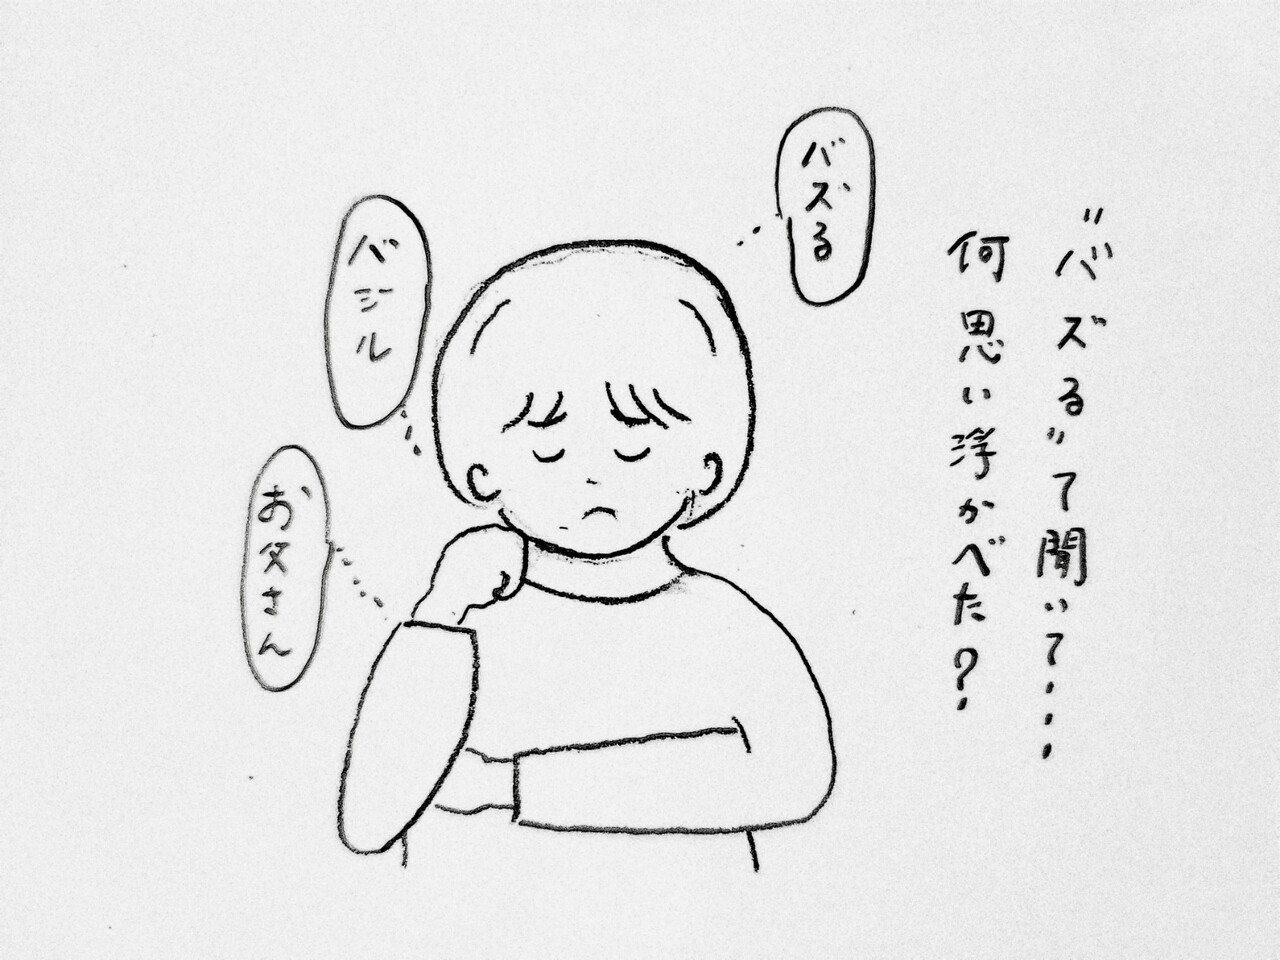 "バズる"て聞いて・・・
何思い浮かべた?
バズる
バジル
お父さん